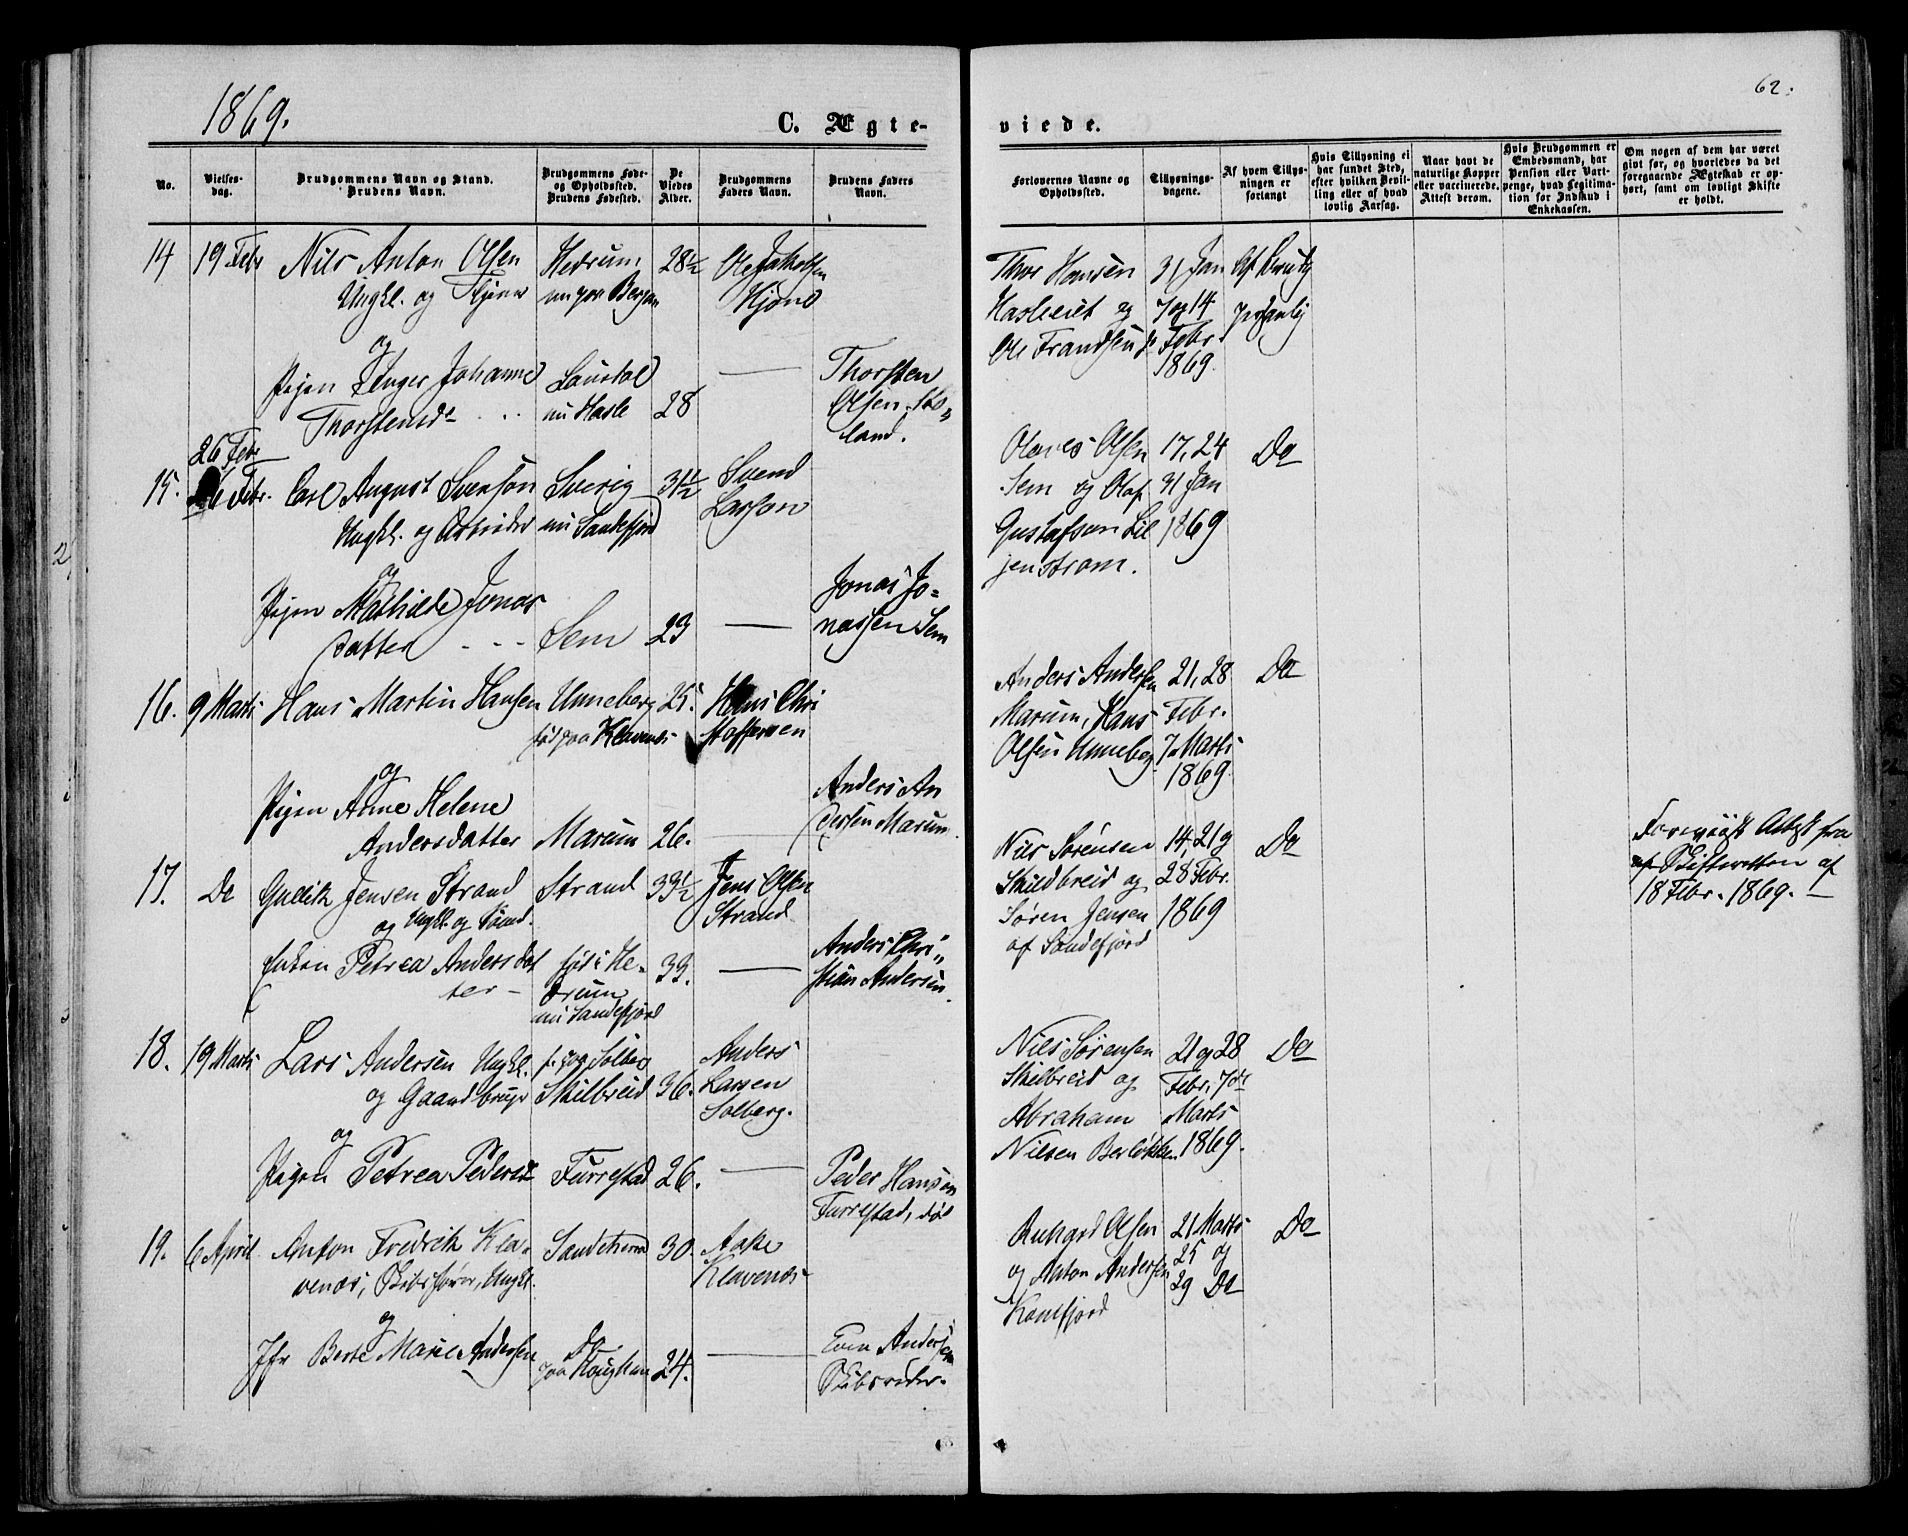 1869.
C. Ægte-
viede.
62.
No.
Vielses-
dag.
Brudgommens Navn og Stand.
Brudens Navn.
Brudgommens Føde-
og Opholdssted.
Brudens Fødested.
De
Viedes
Alder.
Brudgommens
Faders Navn.
Brudens Faders
Navn.
Forlovernes Navne og
Opholdssted.
Tillysnings-
dagene.
Af hvem Tillys-
ningen er
forlangt
Hvis Tillysning ei
har fundet Sted,
efter hvilken Bevil-
ling eller af hvad
lovlig Aarsag.
Naar havt de
naturlige Kopper
eller vaccinerede.
Attest derom.
Hvis Brudgommen er
Embedsmand, har
Pension eller Vart-
penge, hvad Legitima-
tion for Indskud i
Enkekassen.
Om nogen af dem har været
gift før, og hvorledes da det
foregaaende Ægteskab er op-
hørt, samt om lovligt Skifte
er holdt.
14 19 Febr Nils Anton Olsen Hedrum 28½ Ole Jakobsen
Ungkl. og Tjener nu paa Bergan
Thor Hansen 31 Jan Af Brudg
Hasleeiet og 7 og 14 personlig
Ole Frandsen Febr.
1869.
og
Pigen Inger Johanne 28 Thorsten
Thorstensd nu Hasle Olsen
land.
26 Febr
15. Febr. Carl August Svenson Sverig 31½ Svend
Ungkl. og Arbeider nu Sandefjord Larson
Olaves Olsen 17, 24 Do
Sem og Olaf 31 Jan
Gustafson Lil 1869
jenstrom.
og
Pigen Mathilde Jonas Sem 23 Jonas Jo-
datter nassen Sem
16. 9 Marts Hans Martin Hansen Unneberg 25. Hans Chri
fød paa Klavenes stoffersen
Anders Andersen 21, 28 Do
Marum, Hans Febr.
Olsen Unneberg 7 Marts
1869.
og
Pigen Anne Helene Anders An
Andersdatter Marum 26. dersen Marum.
17. Do Gullik Jensen Strand Strand 33½ Jens Olsen
og Ungkl. og Tømd. Strand
Nils Sørensen 14, 21 og Do
Skildbreid og 28 Febr.
Søren Jensen 1869
af Sandefjord
Skifteretten af
18 Febr. 1869.
Enken Petrea Andersdat fød i He- 33. Anders Chri
ter drum stian Andersen.
nu Sandefjord
18. 19 Marts Lars Andersen Ungkl. f. paa Solberg Anders
og Gaardbruger Skilbreid 36. Larsen
Solberg.
Nils Sørensen 21 og 28 Do
Skilbreid og Febr, 7de
Abraham Marts
Nilsen Berløkken 1869.
og
Pigen Petrea Pedersd Furrestad 26. Peder Hansen
Furrestad, død
19. 6 April Anton Fredrik Kla- Sandeherred 30.
venæs, Skibsfører, Ungkl. Klavenæs
Olsen 21 Marts Do
og Anton Andersen 25 og
29 Do
og
Jfr Berte Marie Andersen Do
paa Haughem 24. Even Andersen
Skibsreder.